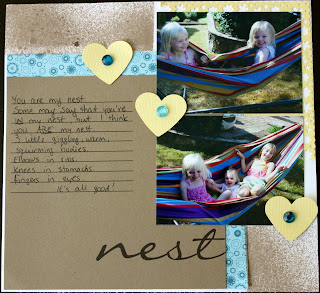 You are my nest
Some may say that you're
in my nest but I think
you ARE my nest
3 little giggling, warm,
squirming bodies.
Elbows in ribs.
knees in stomachs
fingers in eyes
it's all good!
nest